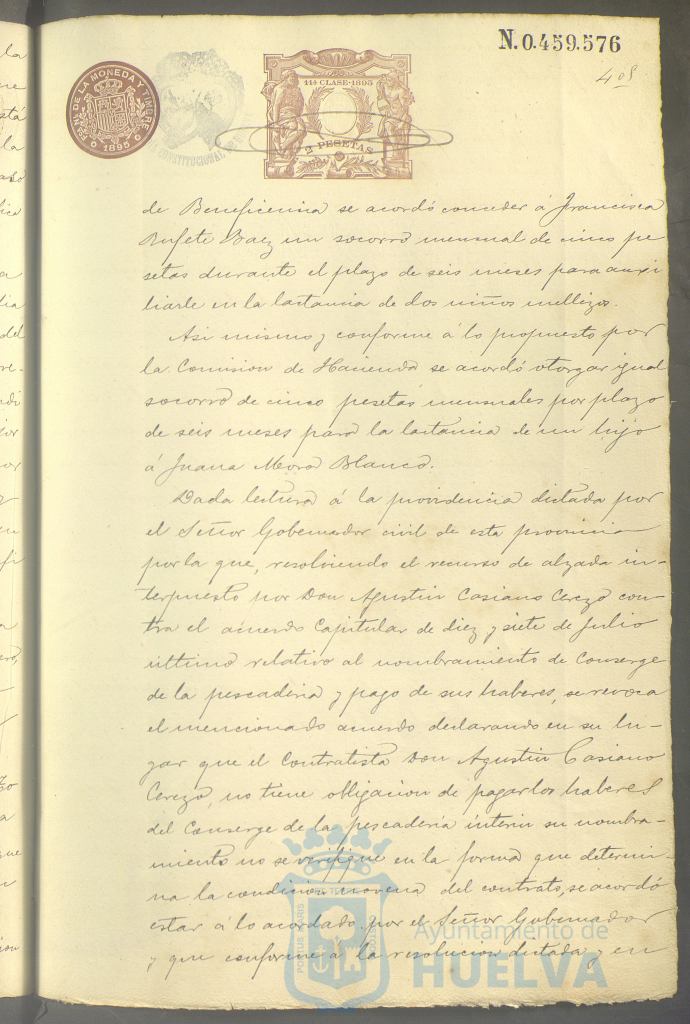 N.0.459.576
408
FCA. NAL. DE LA MONEDA Y TIMBRE
1895
CONSTITUCIONAL
11ª CLASE-1895
2 PESETAS
de Beneficencia se acordó conceder á Francisca
Rufete Baez un socorro mensual de cinco pe
setas durante el plazo de seis meses para auxi
liarle en la lactancia de dos niños mellizos.
Asi mismo y conforme á lo propuesto por
la Comision de Hacienda se acordó otorgar igual
socorro de cinco pesetas mensuales por plazo
de seis meses para la lactancia de un hijo
á Juana Mora Blanco.
Dada lectura á la providencia dictada por
el Señor Gobernador civil de esta provincia
por la que, resolviendo el recurso de alzada in-
terpuesto por Don Agustin Casiano Cerezo con-
tra el acuerdo Capitular de diez y siete de Julio
último relativo al nombramiento de Conserge
de la pescaderia y pago de sus haberes, se revoca
el mencionado acuerdo declarando en su lu-
gar que el Contratista Don Agustin Casiano
Cerezo, no tiene obligacion de pagar los haberes
del Conserge de la pescadería interin su nombra-
miento no se verifique en la forma que determi-
na la condicion novena del contrato, se acordó
estar á lo acordado por el Señor Gobernador
y que conforme á la resolucion dictada y en
PORTUS MARIS
ET TERRAE
CUSTODIA
Ayuntamiento de
HUELVA